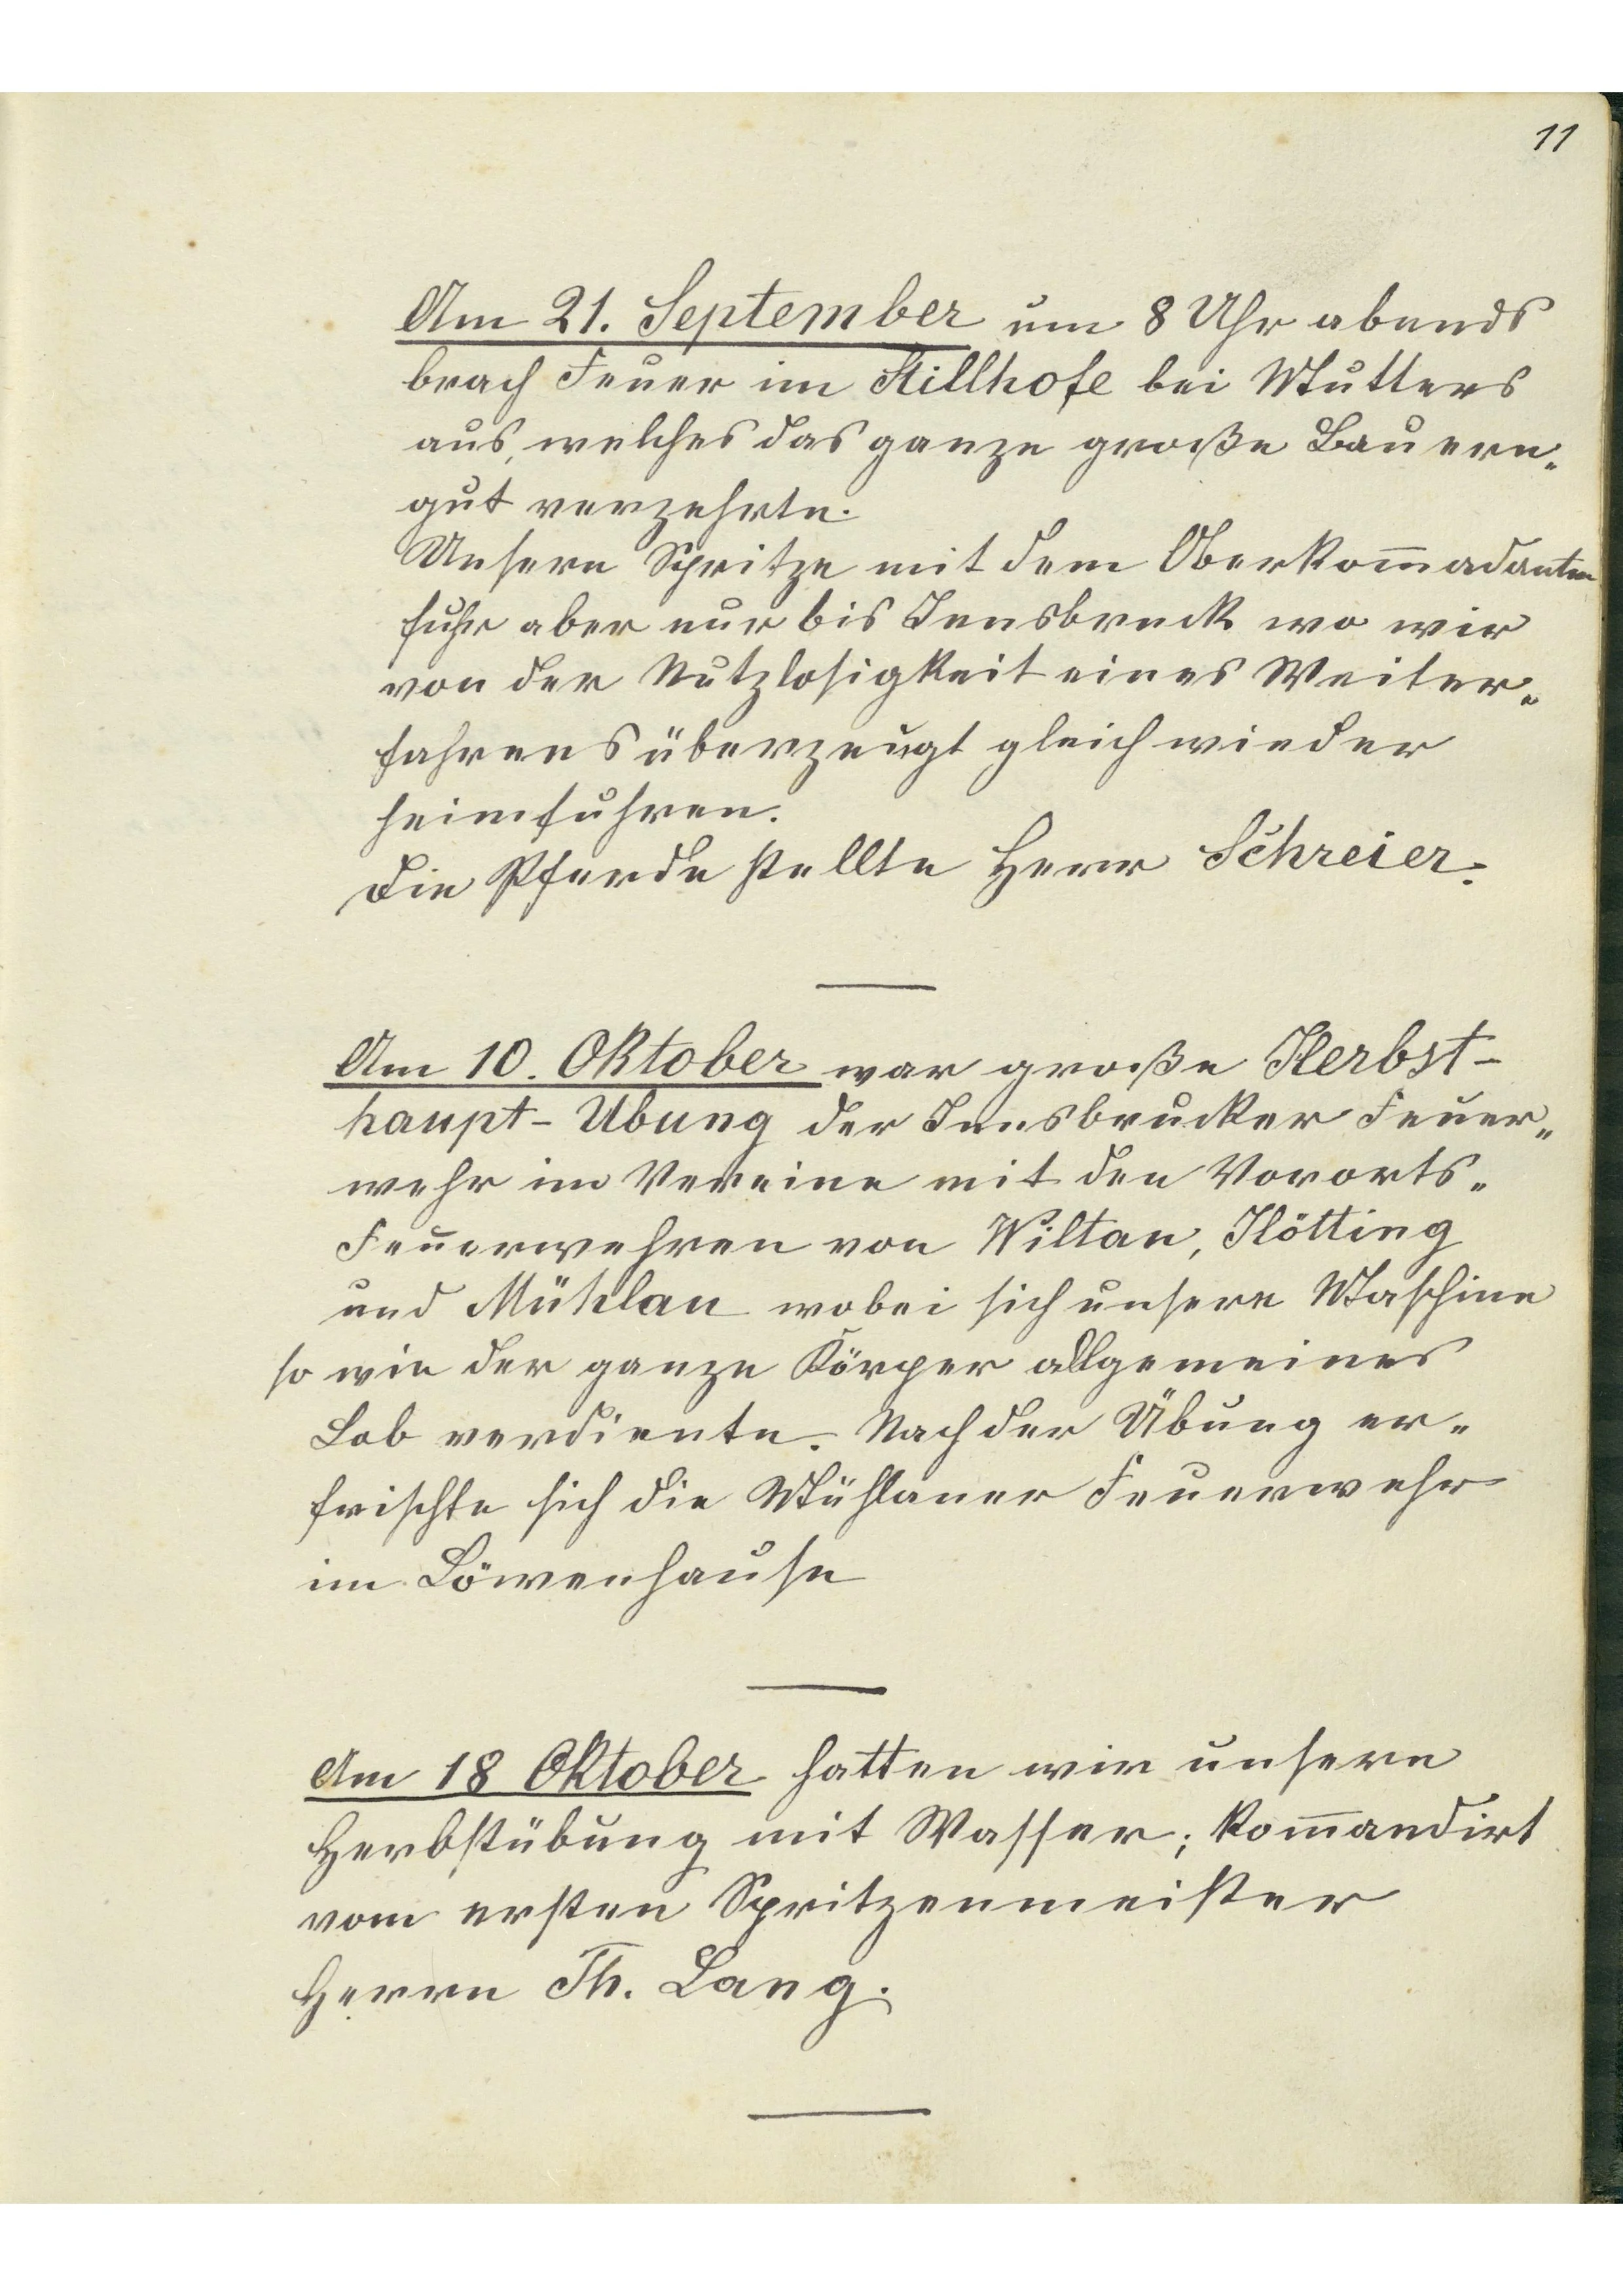 11
Am 21. September um 8 Uhr abends
brach Feuer im Stillhofe bei Mutters
aus, welches das ganze große Bauern-
gut verzehrte.
Unsere Spritze mit dem Oberkom̅adanten
fuhr aber nur bis Innsbruck wo wir
von der Nutzlosigkeit eines Weiter-
fahrens überzeugt gleich wieder
heimfuhren.
Die Pferde stellte Herr Schreier.
Am 10. Oktober war große Herbst-
haupt-Übung der Innsbrucker Feuer-
wehr im Vereine mit den Vororts-
Feuerwehren von Wiltau, Hötting
und Mühlau wobei sich unsere Maschine
so wie der ganze Körper allgemeines
Lob verdiente. Nach der Übung er-
frischte sich die Mühlauer Feuerwehr
im Löwenhause
Am 18 Oktober hatten wir unsere
Herbstübung mit Wasser; kom̅andirt
vom ersten Spritzenmeister
Herrn Th. Lang.